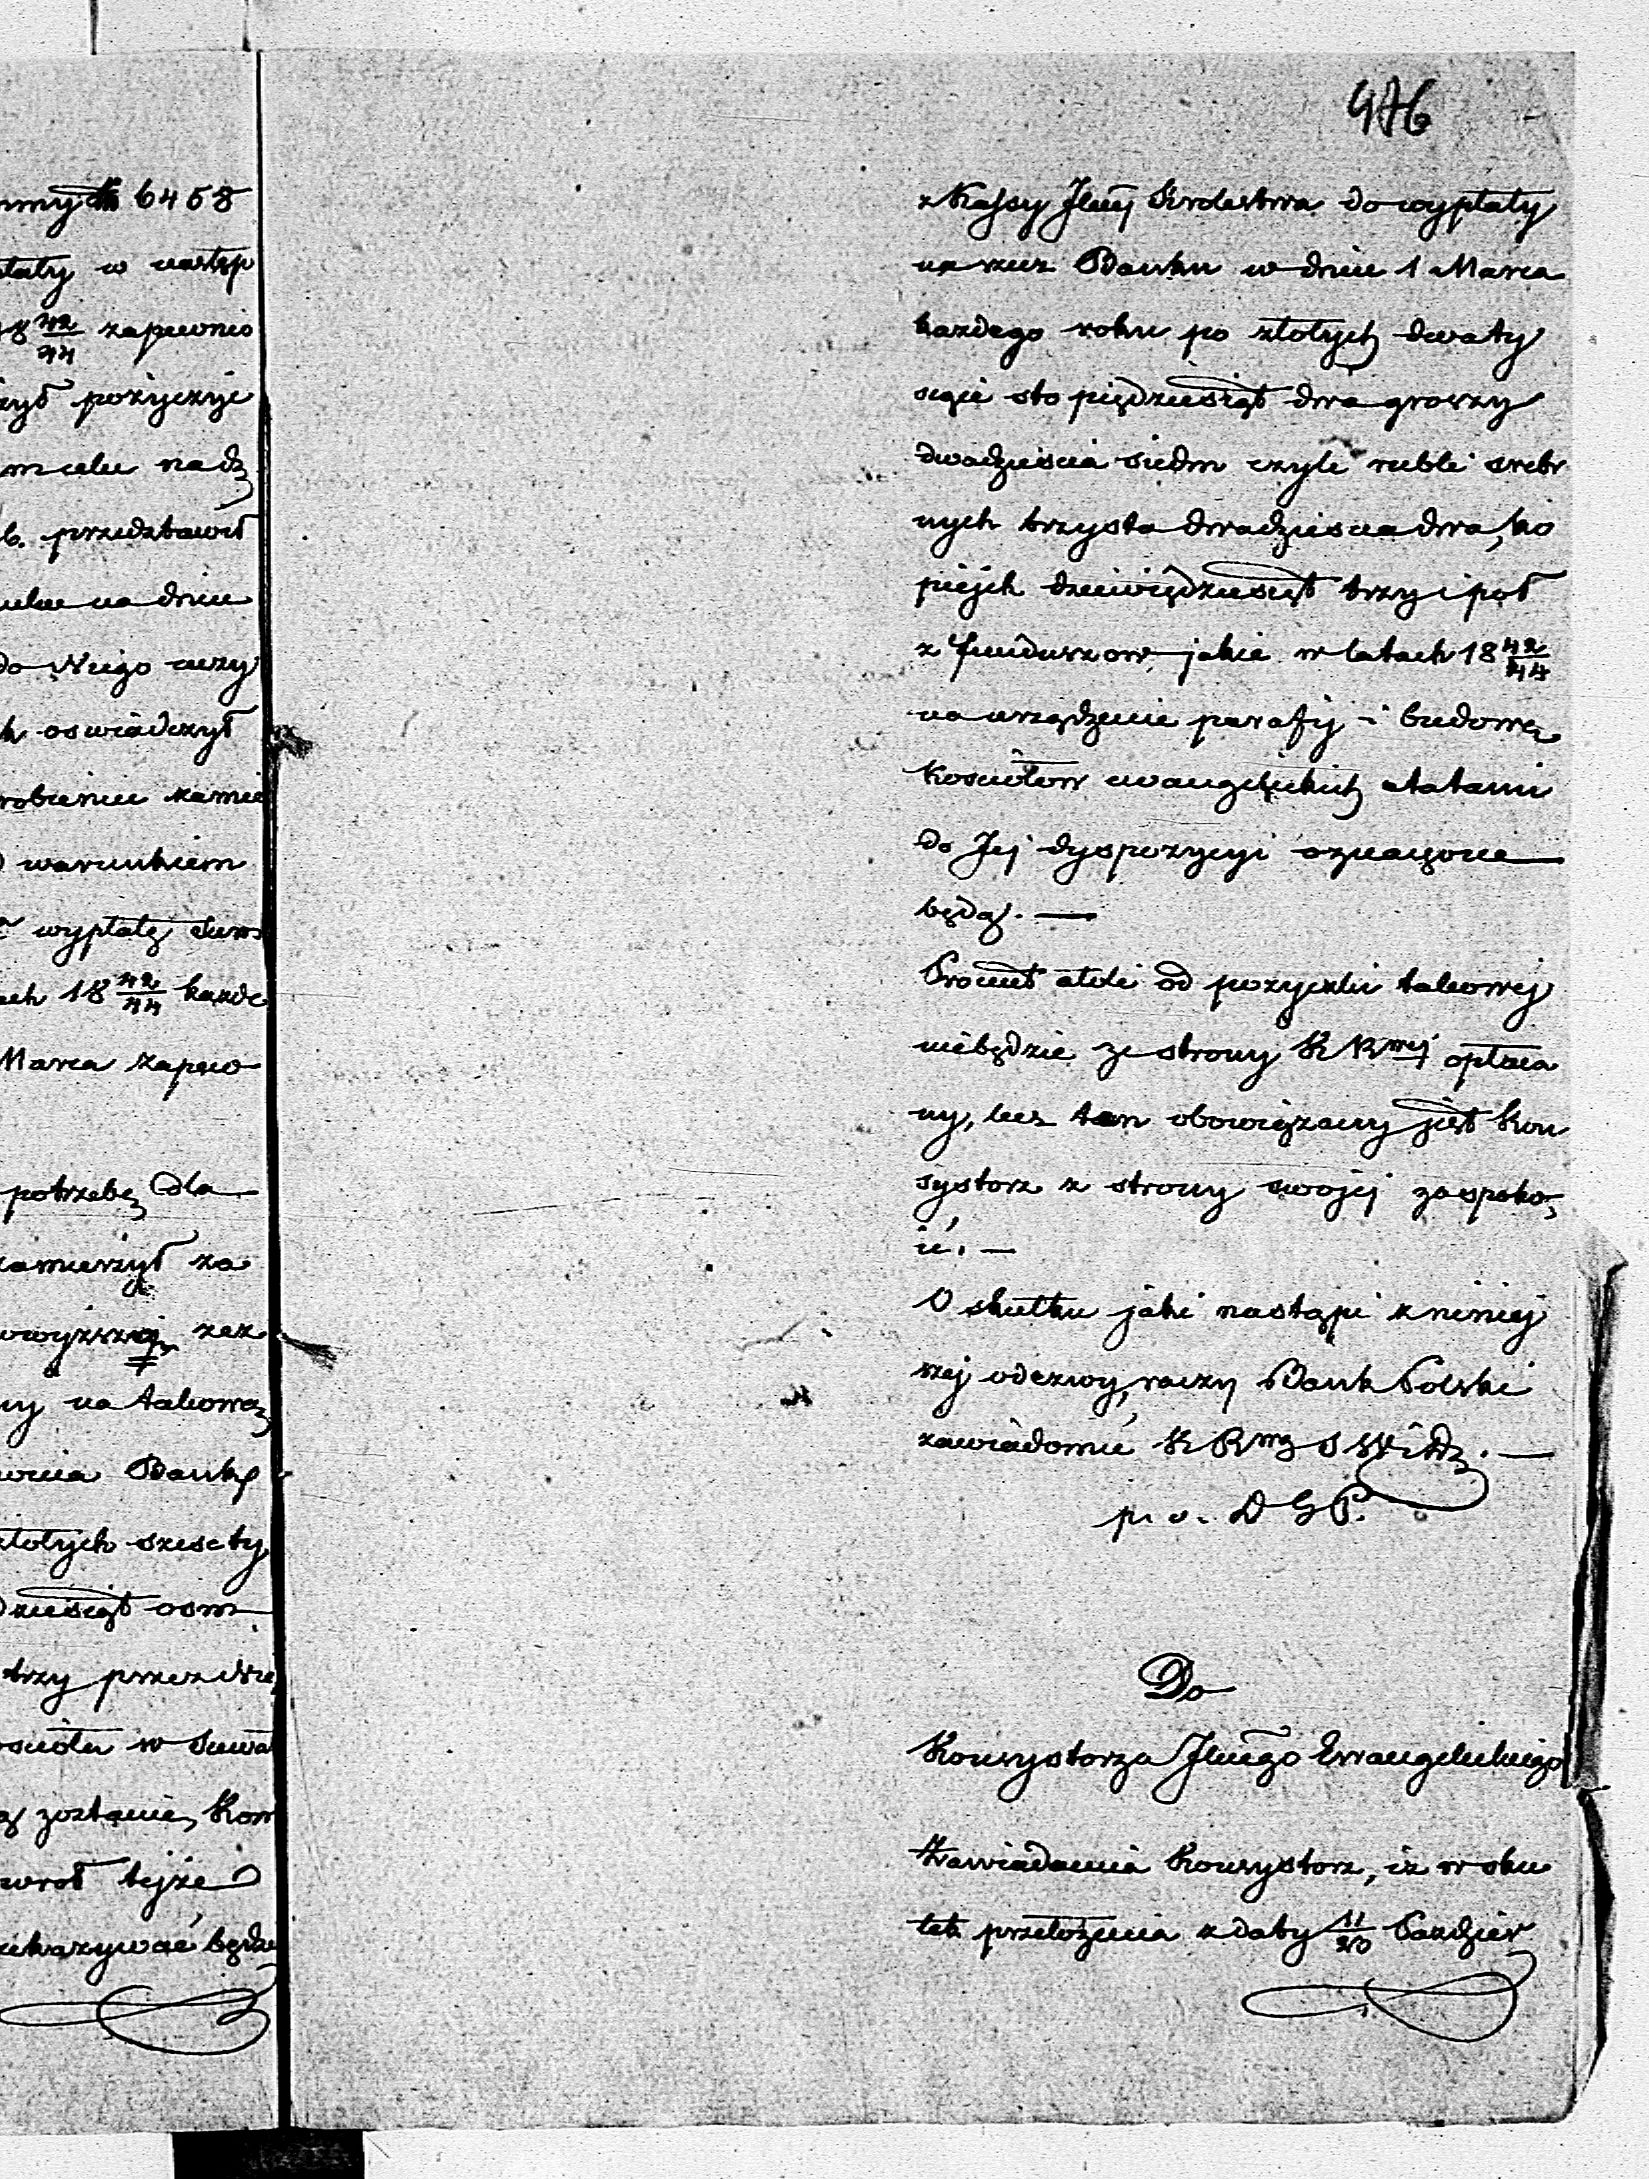 nnych 6458
płaty w następ
18 42/44 zapewnio
żył pożyczyć
m celu nadz
b. przedstawił
na dniu
do Niego uczy
h oswiadczył
robieniu zamie
warunkiem
wypłatę Sum
ach 18 42/44 każde
Marca zapew
potrzebę dla
zamierzył za
wyższej zez
ny na takową
Banku
złotych szescty
dziesiąt osm
trzy przez
w Suwa
zostanie, Kom
wrot tejże
kazywać będzie
476
z Kassy Jlnej Krolestwa do wypłaty
na rzecz Banku w dniu 1 Marca
każdego roku po złotych dwaty
siące sto pięćdziesiąt dwa groszy
dwadziescia siedm czyli rubli srebr
nych trzysta dwadziescia dwa, ko
piejek dziewięćdziesiąt trzy i poł
z funduszow jakie w latach 18 42/44
na urządzenie parafij i budowę
Kosciołow ewangelickich etatami
do Jej dyspozycyi oznaczone
będą. —
Procent atoli od pozyczki takowej
niebędzie ze strony K R wej opłaca
ny, lecz ten obowiązany jest Kon
systorz z strony swojej zaspoko,
ić. —
O skutku jaki nastąpi z niniej
szej odezwy, raczy Bank Polski
zawiadomić K R wą S W i D. —
p. o. D G P.
Do
Konsystorza Jlnego Ewangelickiego
Zawiadamia Konsystorz, iż w sku
tek przełożenia z daty 11/20 Pazdzier